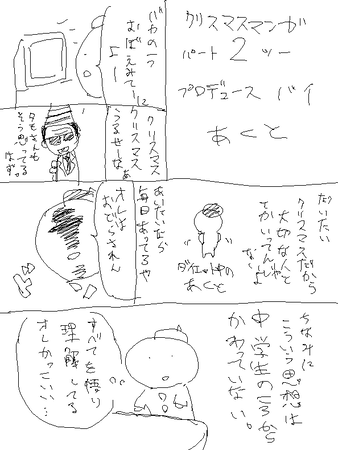 クリスマスマンガ
パート2ツー
プロデュース バイ
あくと
バカの一つ
おぼえみてーに
よー
クリスマス
クリスマス
うるせーなぁ
タモさんも
そう思ってる
はず。
だいたい
クリスマスだから
大切な人と
でかいってんじゃ
ねーよ
ダイエット中の
あくと
あいたいなら
毎日あってろや
オレは
おどらされん
ちなみに
こういう思想は
中学生のころから
かわっていない。
すべてを悟り
理解してる
オレかっこいい…